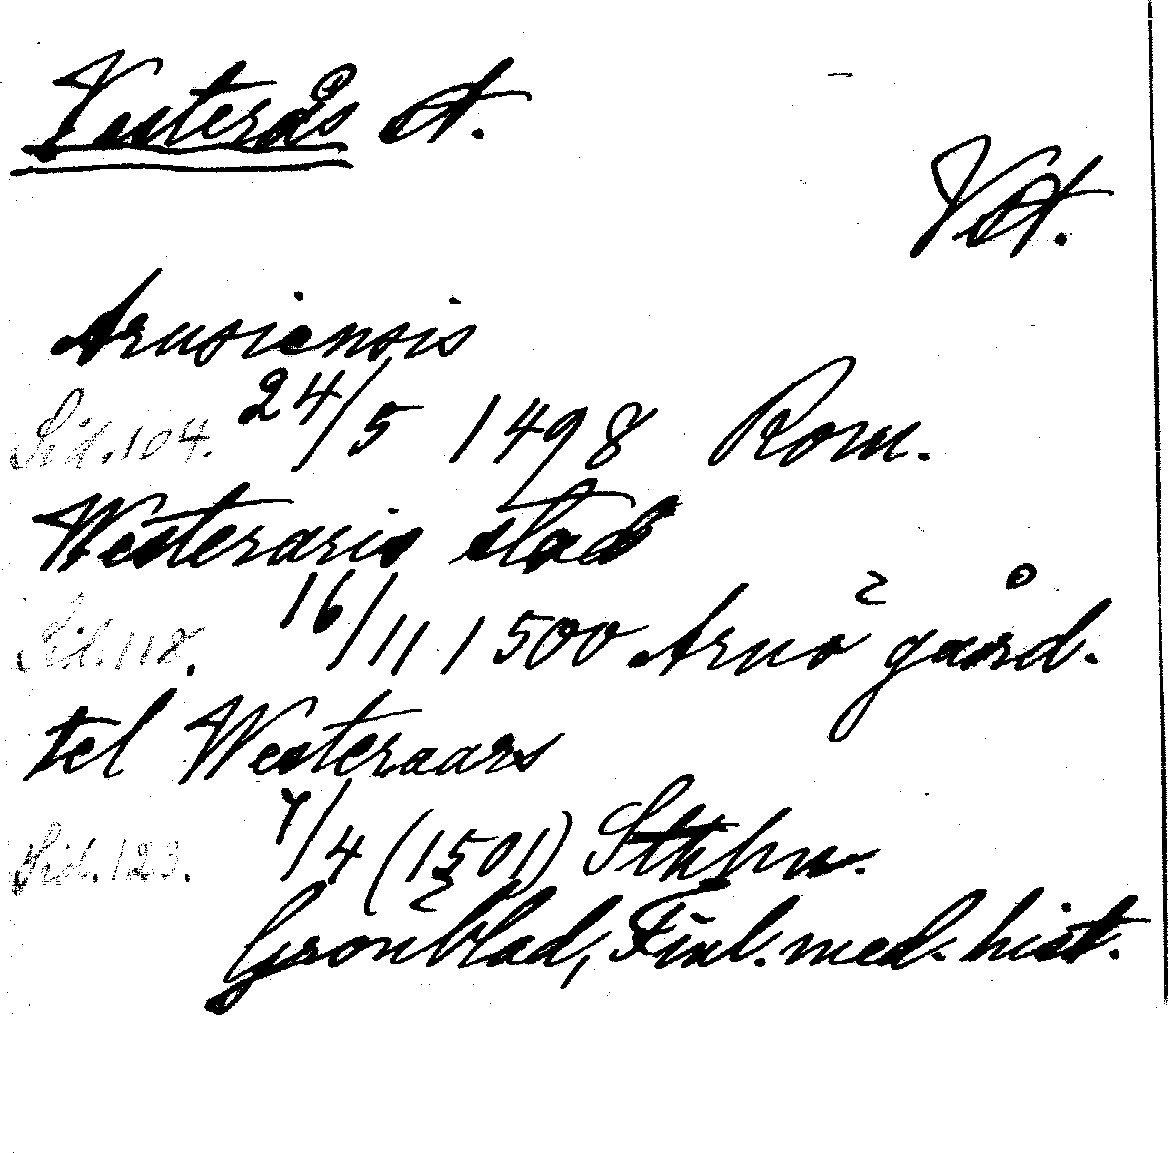 Vesterås st.
Vst.
Arusiensis
Sid. 104. 24/5 1498 Rom.
Westeraris stad
Sid. 118. 16/11 1500 Arnö gaård.
tel Westeraars
Sid. 123. 7/4 (1501) Sthhm.
Grönblad, Finl. med. hist.